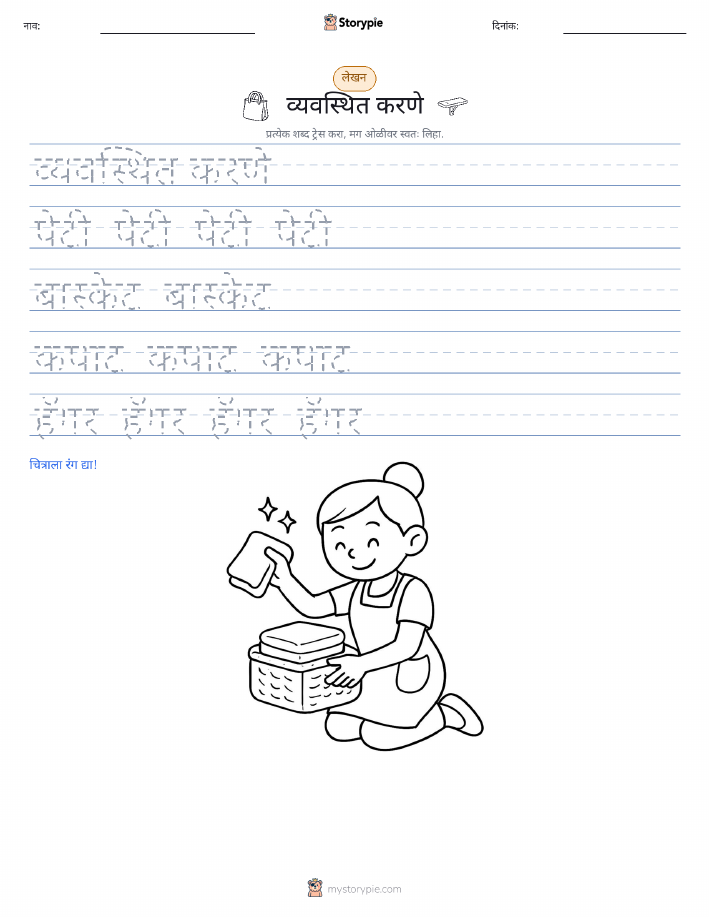 नाव:
Storypie
दिनांक:
लेखन
व्यवस्थित करणे
प्रत्येक शब्द ट्रेस करा, मग ओळीवर स्वतः लिहा.
व्यवस्थित करणे
पेटी पेटी पेटी पेटी
बास्केट बास्केट
कपाट कपाट कपाट
हँगर हँगर हँगर हँगर
चित्राला रंग द्या!
mystorypie.com